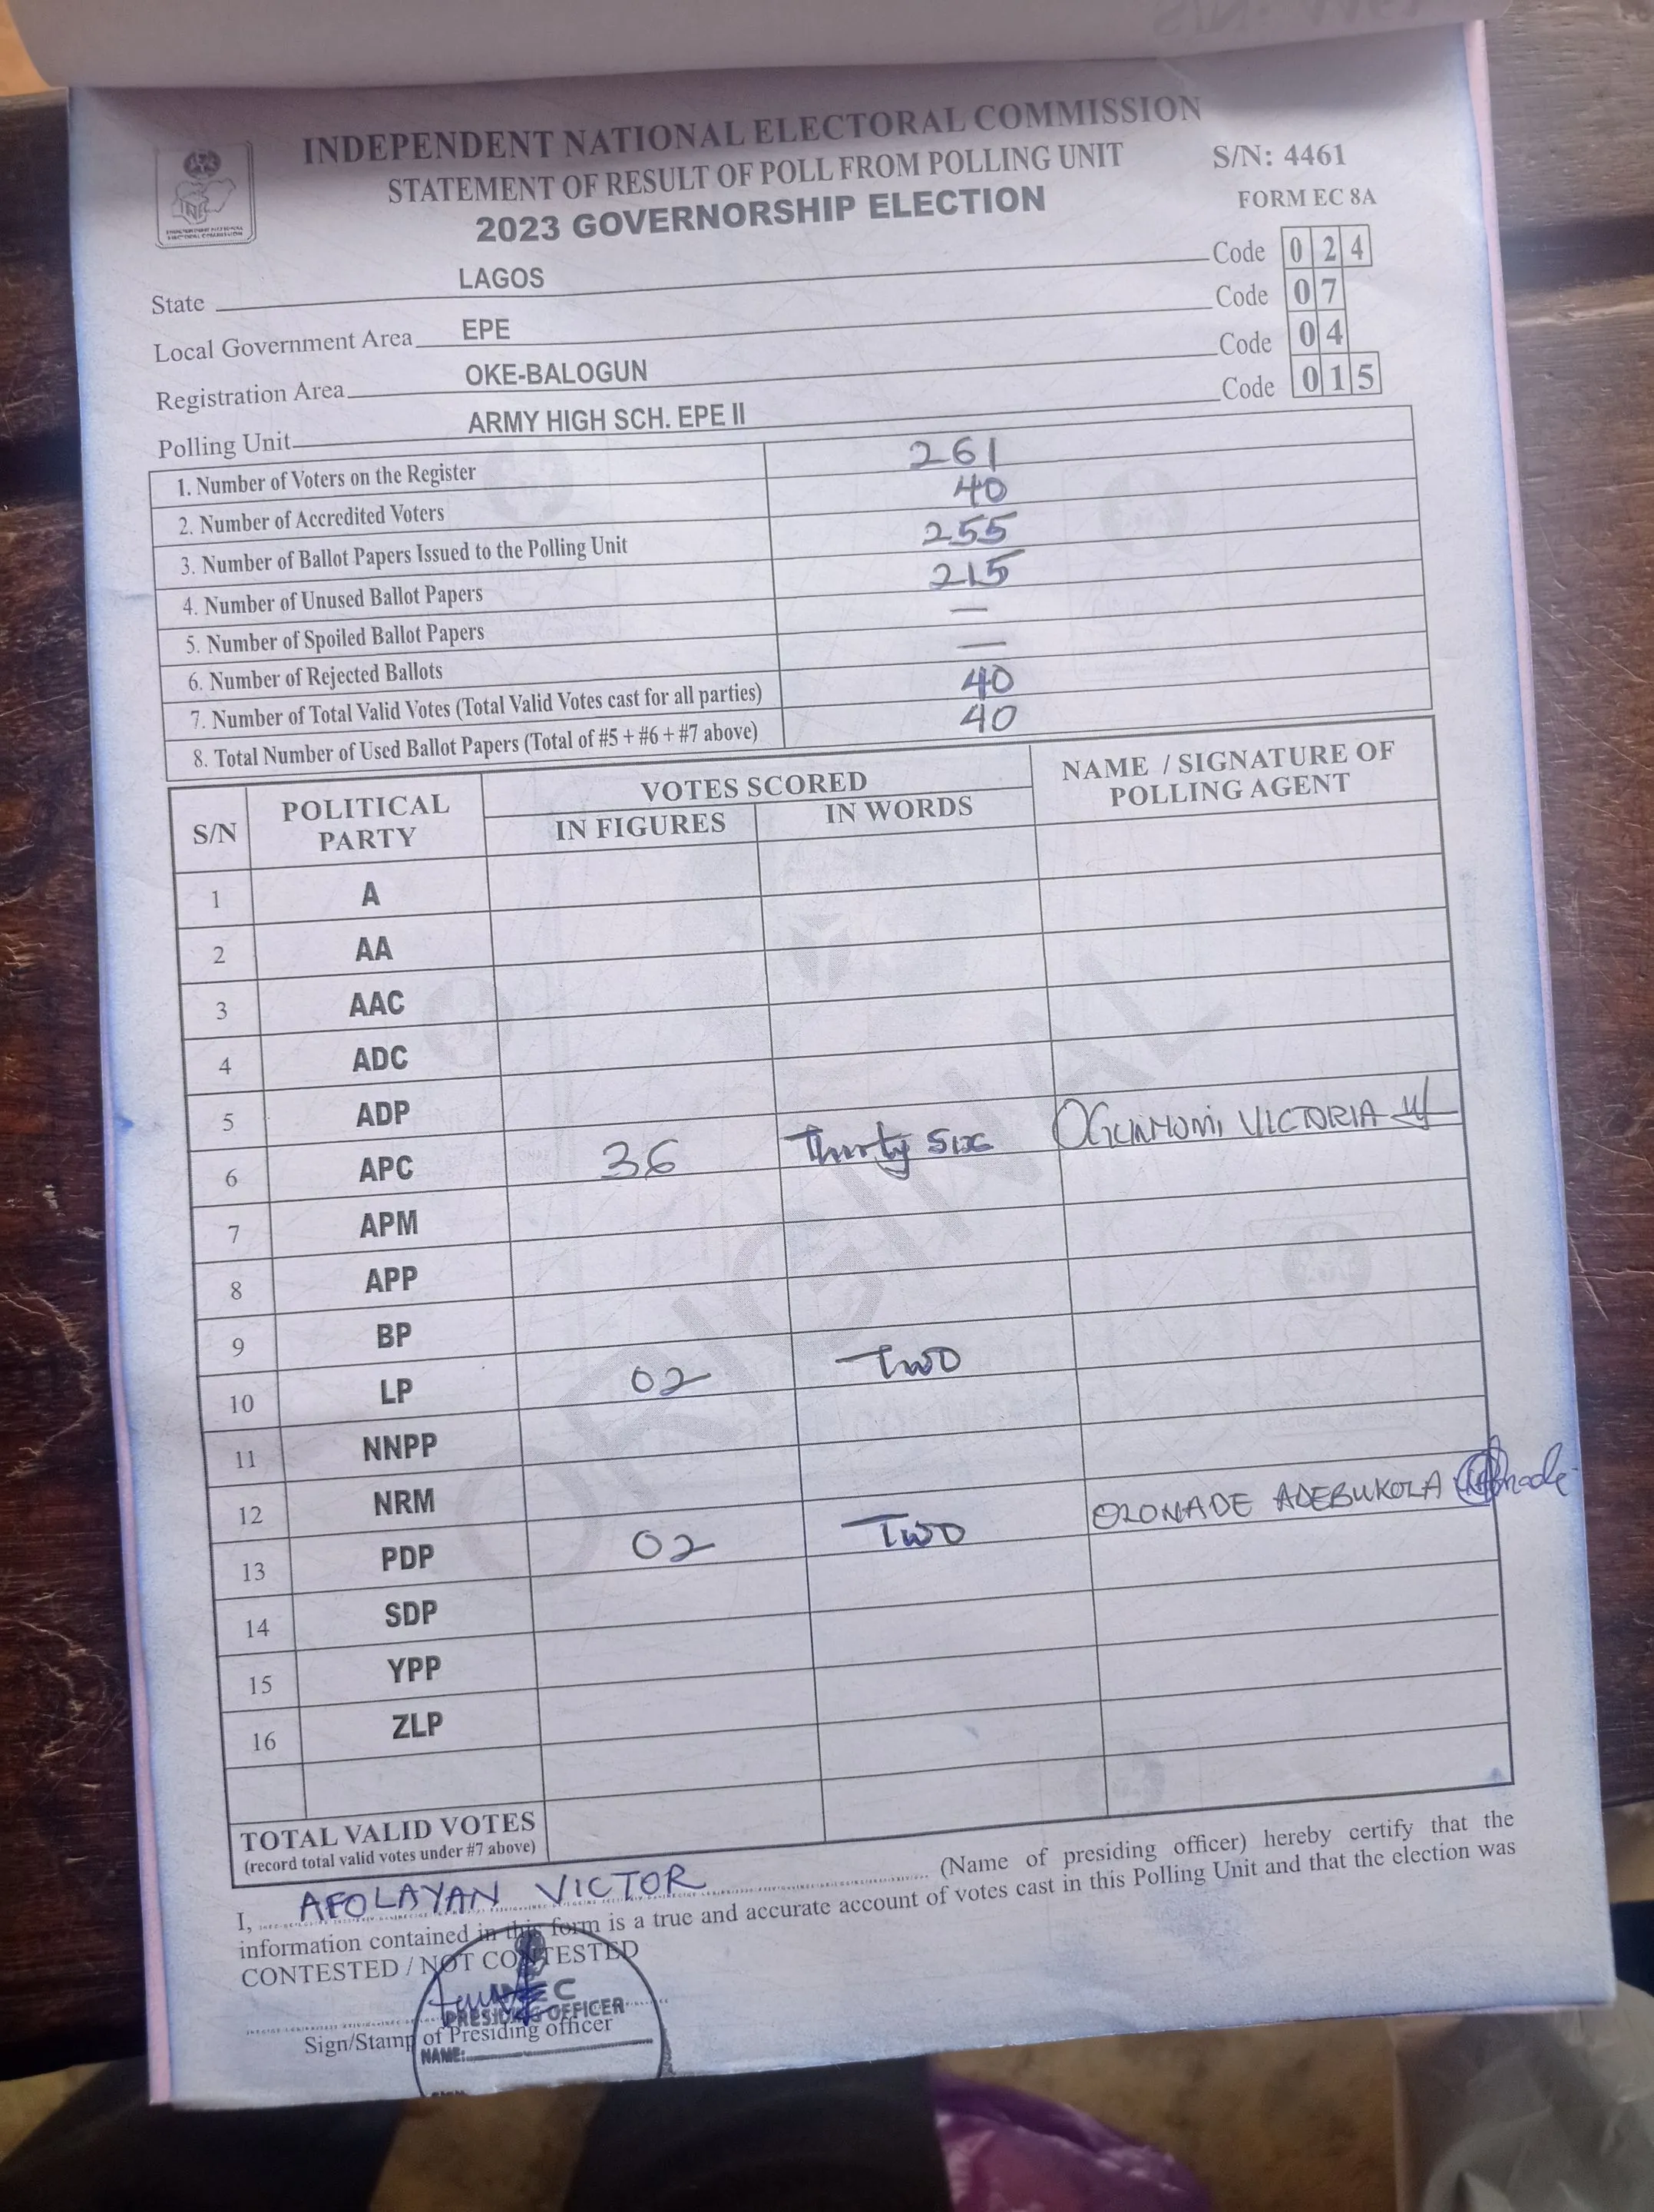 INDEPENDENT NATIONAL ELECTORAL COMMISSION
STATEMENT OF RESULT OF POLL FROM POLLING UNIT S/N: 4461
2023 GOVERNORSHIP ELECTION FORM EC 8A
State LAGOS Code 0 2 4
Local Government Area EPE Code 0 7
Registration Area OKE-BALOGUN Code 0 4
Polling Unit ARMY HIGH SCH. EPE II Code 0 1 5
1. Number of Voters on the Register 261
2. Number of Accredited Voters 40
3. Number of Ballot Papers Issued to the Polling Unit 255
4. Number of Unused Ballot Papers 215
5. Number of Spoiled Ballot Papers —
6. Number of Rejected Ballots —
7. Number of Total Valid Votes (Total Valid Votes cast for all parties) 40
8. Total Number of Used Ballot Papers (Total of #5 + #6 + #7 above) 40
S/N POLITICAL PARTY VOTES SCORED NAME / SIGNATURE OF POLLING AGENT
IN FIGURES IN WORDS
1 A
2 AA
3 AAC
4 ADC
5 ADP
6 APC 36 Thirty six OGUNMUNI VICTORIA
7 APM
8 APP
9 BP
10 LP 02 Two
11 NNPP
12 NRM
13 PDP 02 Two OLONADE ADEBUKOLA
14 SDP
15 YPP
16 ZLP
TOTAL VALID VOTES
(record total valid votes under #7 above)
I, AFOLAYAN VICTOR (Name of presiding officer) hereby certify that the
information contained in this form is a true and accurate account of votes cast in this Polling Unit and that the election was
CONTESTED / NOT CONTESTED
INEC
PRESIDING OFFICER
Sign/Stamp of Presiding officer
NAME:
ORIGINAL